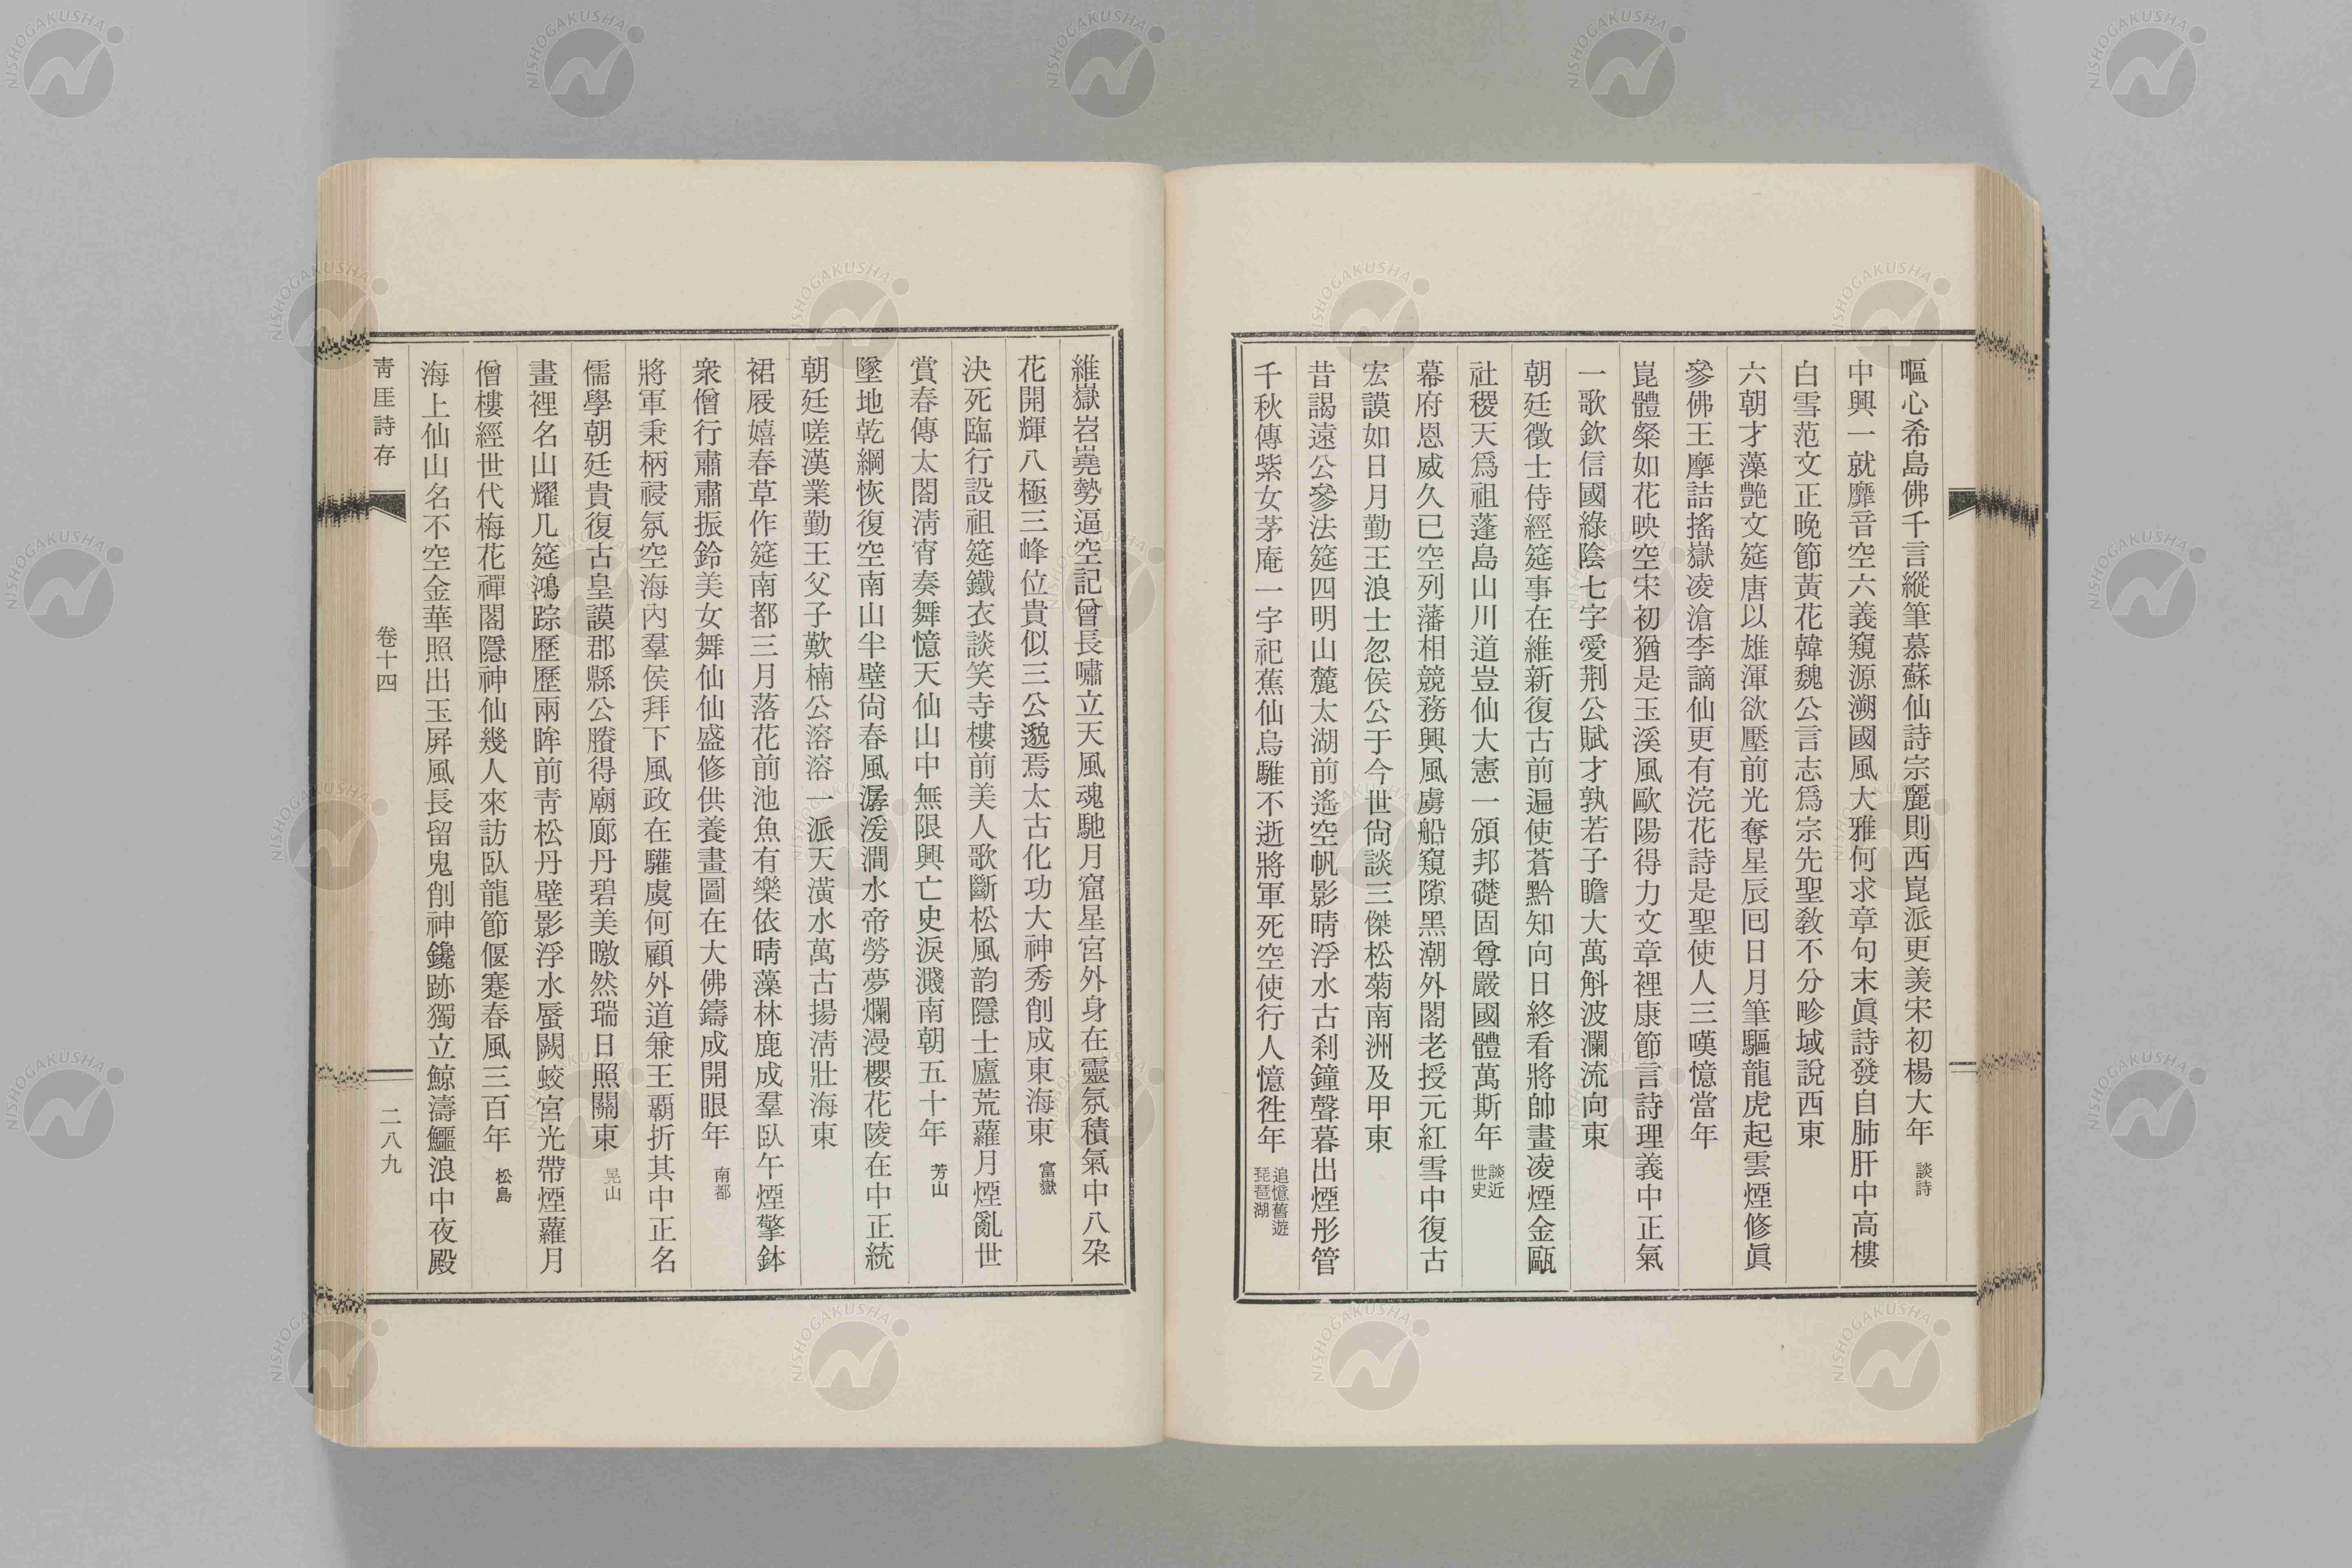 嘔心希島佛千言縱筆慕蘇仙詩宗麗則西崑派更羨宋初楊大年 談詩
中興一就靡音空六義窺源溯國風大雅何求章句末眞詩發自肺肝中高樓
白雪范文正晚節黃花韓魏公言志爲宗先聖敎不分畛域說西東
六朝才藻艷文筵唐以雄渾欲壓前光奪星辰囘日月筆驅龍虎起雲煙修眞
參佛王摩詰搖嶽凌滄李謫仙更有浣花詩是聖使人三嘆憶當年
崑體粲如花映空宋初猶是玉溪風歐陽得力文章裡康節言詩理義中正氣
一歌欽信國綠陰七字愛荆公賦才孰若子瞻大萬斛波瀾流向東
朝廷徵士侍經筵事在維新復古前遍使蒼黔知向日終看將帥畫凌煙金甌
社稷天爲祖蓬島山川道豈仙大憲一頒邦礎固尊嚴國體萬斯年 談近世史
幕府恩威久已空列藩相競務興風虜船窺隙黑潮外閣老授元紅雪中復古
宏謨如日月勤王浪士忽侯公于今世尙談三傑松菊南洲及甲東
昔謁遠公參法筵四明山麓太湖前遙空帆影晴浮水古刹鐘聲暮出煙彤管
千秋傳紫女茅庵一宇祀蕉仙烏騅不逝將軍死空使行人憶徃年 追憶舊遊琵琶湖
維嶽岧嶤勢逼空記曾長嘯立天風魂馳月窟星宮外身在靈氛積氣中八朶
花開輝八極三峰位貴似三公邈焉太古化功大神秀削成東海東 富嶽
決死臨行設祖筵鐵衣談笑寺樓前美人歌斷松風韵隱士廬荒蘿月煙亂世
賞春傳太閤淸宵奏舞憶天仙山中無限興亡史淚濺南朝五十年 芳山
墜地乾綱恢復空南山半壁尙春風潺湲澗水帝勞夢爛漫櫻花陵在中正統
朝廷嗟漢業勤王父子歎楠公溶溶一派天潢水萬古揚淸壯海東
裙屐嬉春草作筵南都三月落花前池魚有樂依晴藻林鹿成羣臥午煙擎鉢
衆僧行肅肅振鈴美女舞仙仙盛修供養畫圖在大佛鑄成開眼年 南都
將軍秉柄祲氛空海內羣侯拜下風政在驩虞何顧外道兼王覇折其中正名
儒學朝廷貴復古皇謨郡縣公賸得廟廊丹碧美暾然瑞日照關東 晃山
畫裡名山耀几筵鴻踪歷歷兩眸前靑松丹壁影浮水蜃闕蛟宮光帶煙蘿月
僧樓經世代梅花禪閣隱神仙幾人來訪臥龍節偃蹇春風三百年 松島
海上仙山名不空金華照出玉屛風長留鬼削神鑱跡獨立鯨濤鱷浪中夜殿
靑厓詩存
卷十四
二八九